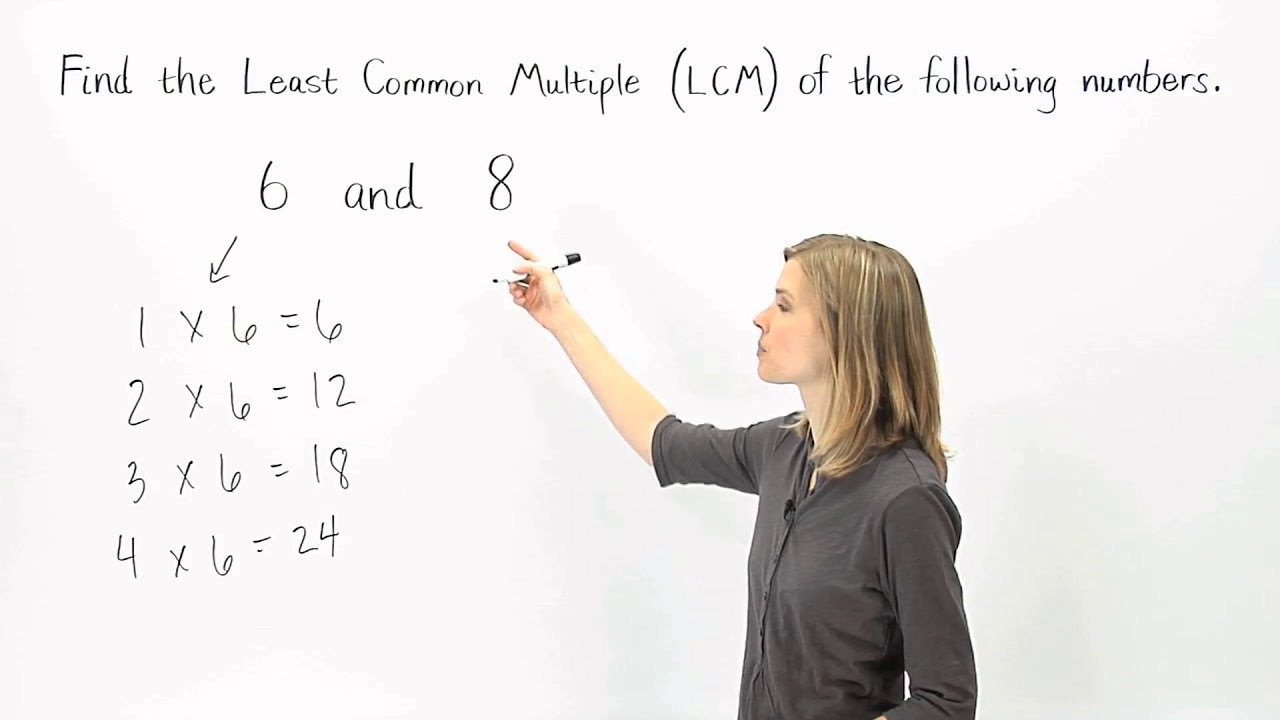 Find the Least Common Multiple (LCM) of the following numbers.
6 and 8
1 x 6 = 6
2 x 6 = 12
3 x 6 = 18
4 x 6 = 24